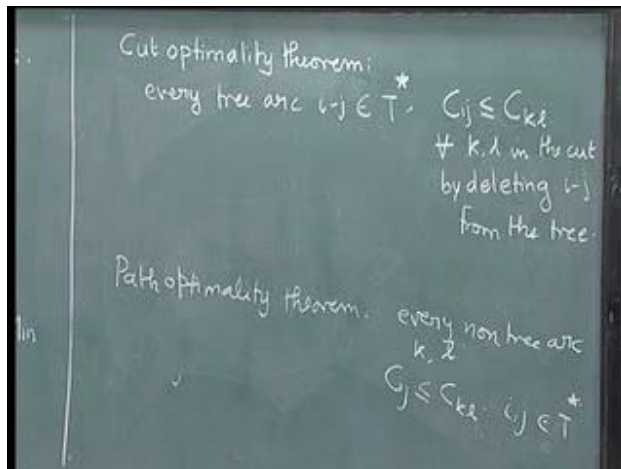 Cut optimality theorem:
every tree arc i-j ∈ T* . Cij ≤ Ckl
∀ k,l in the cut
by deleting i-j
from the tree.
Path optimality theorem. every non tree arc
k, l
Cij ≤ Ckl . i,j ∈ T*
lin